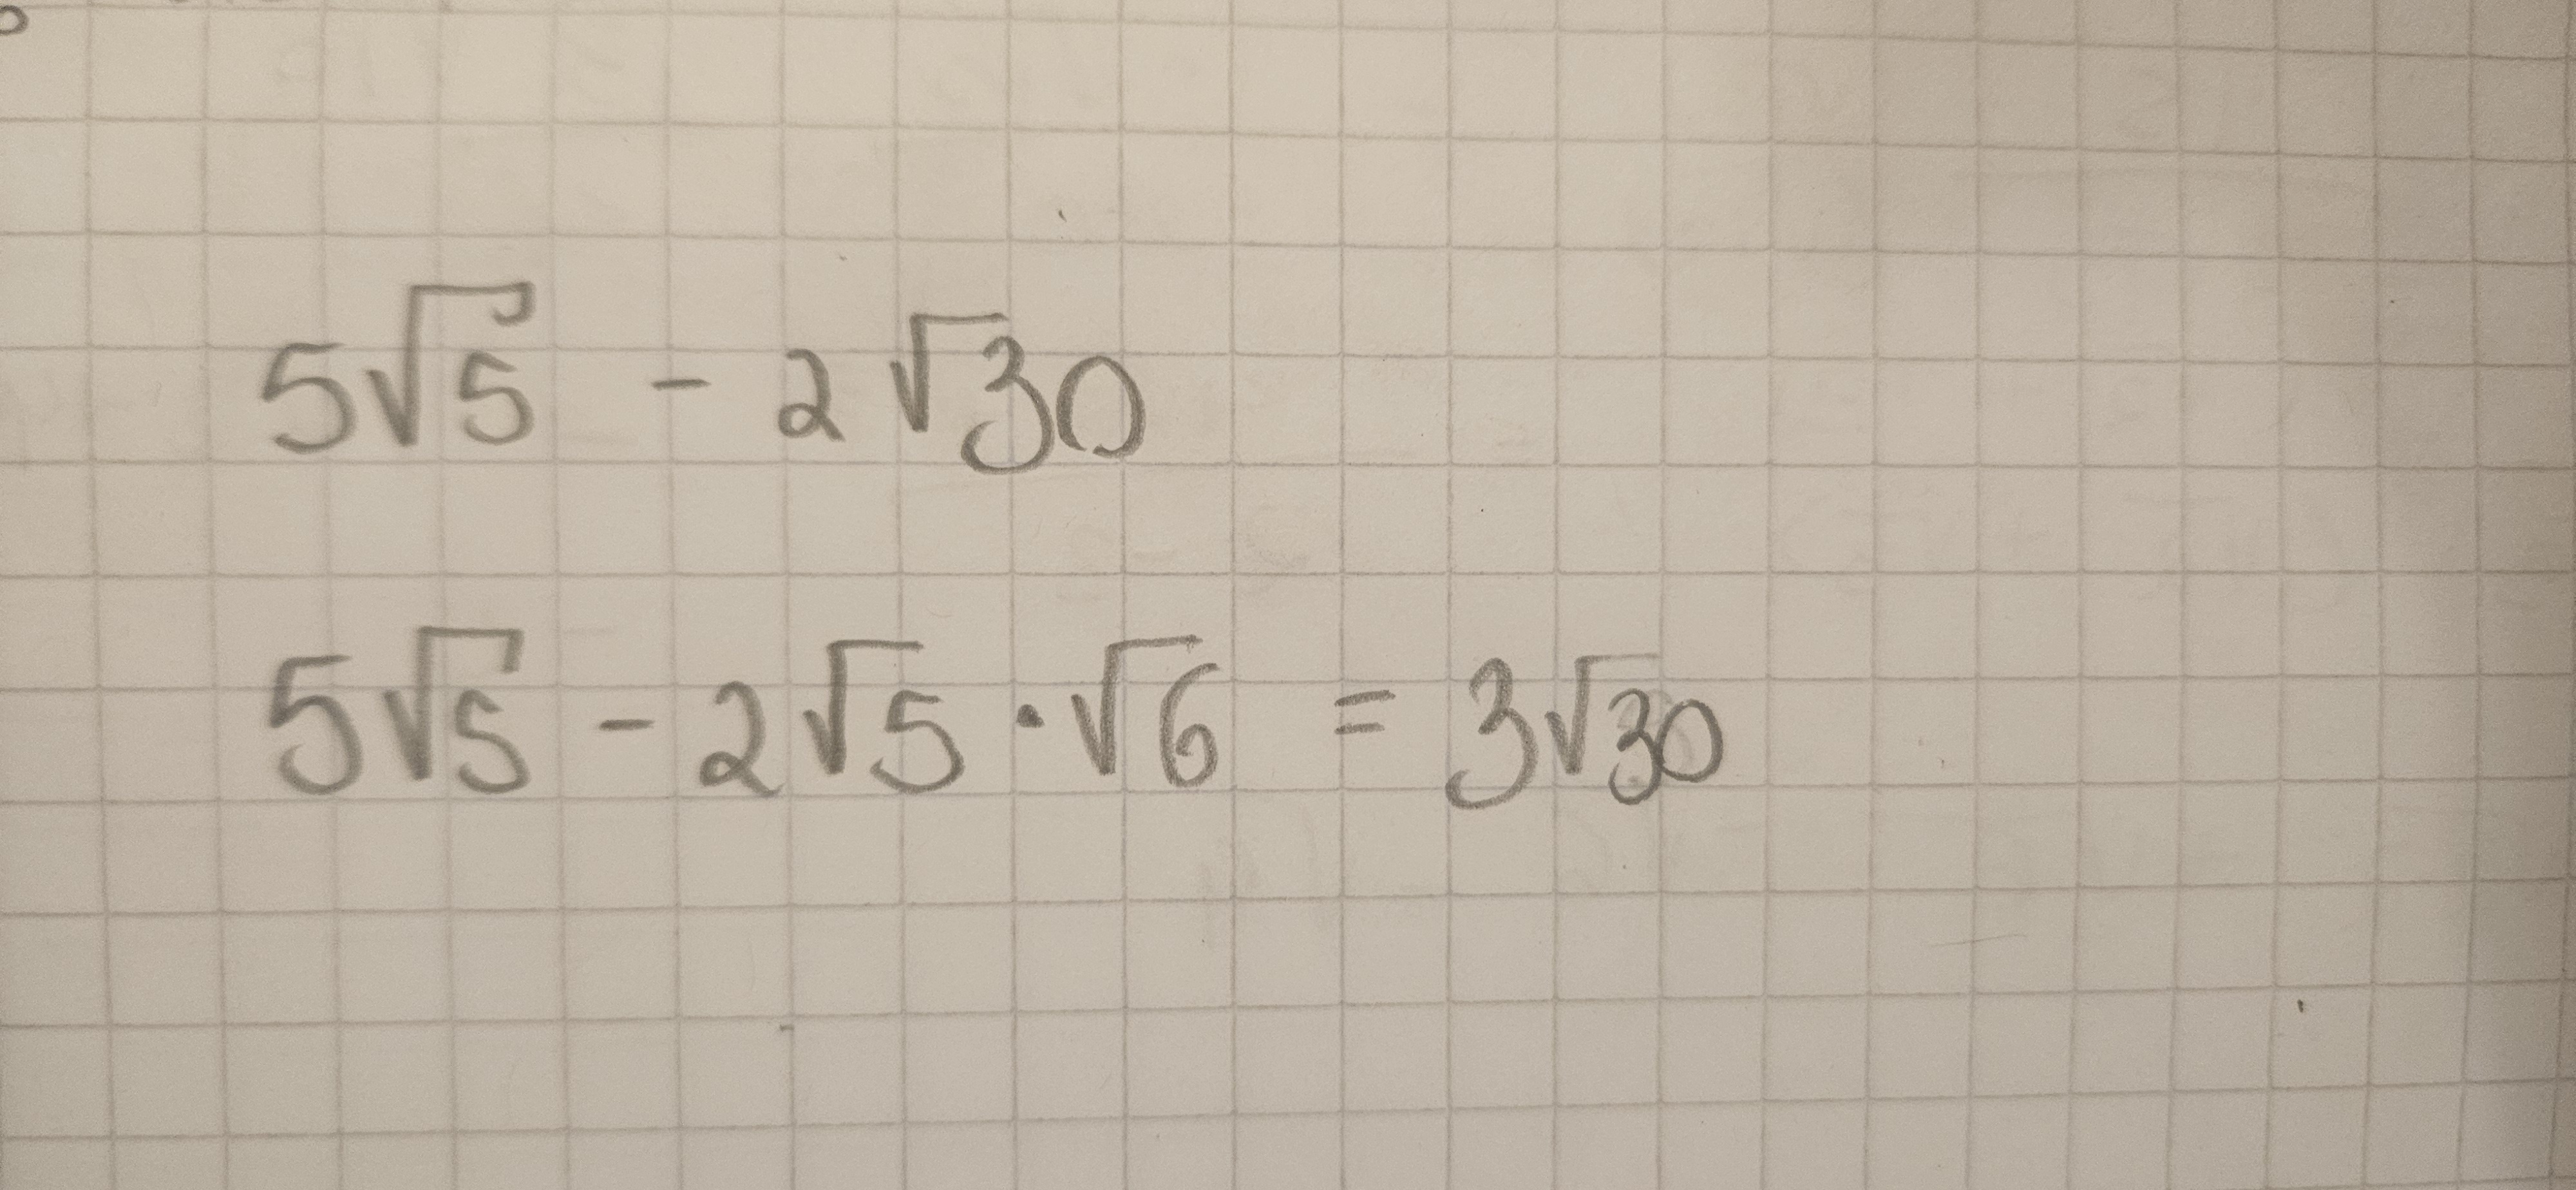 5√5 - 2√30
5√5 - 2√5 · √6 = 3√30